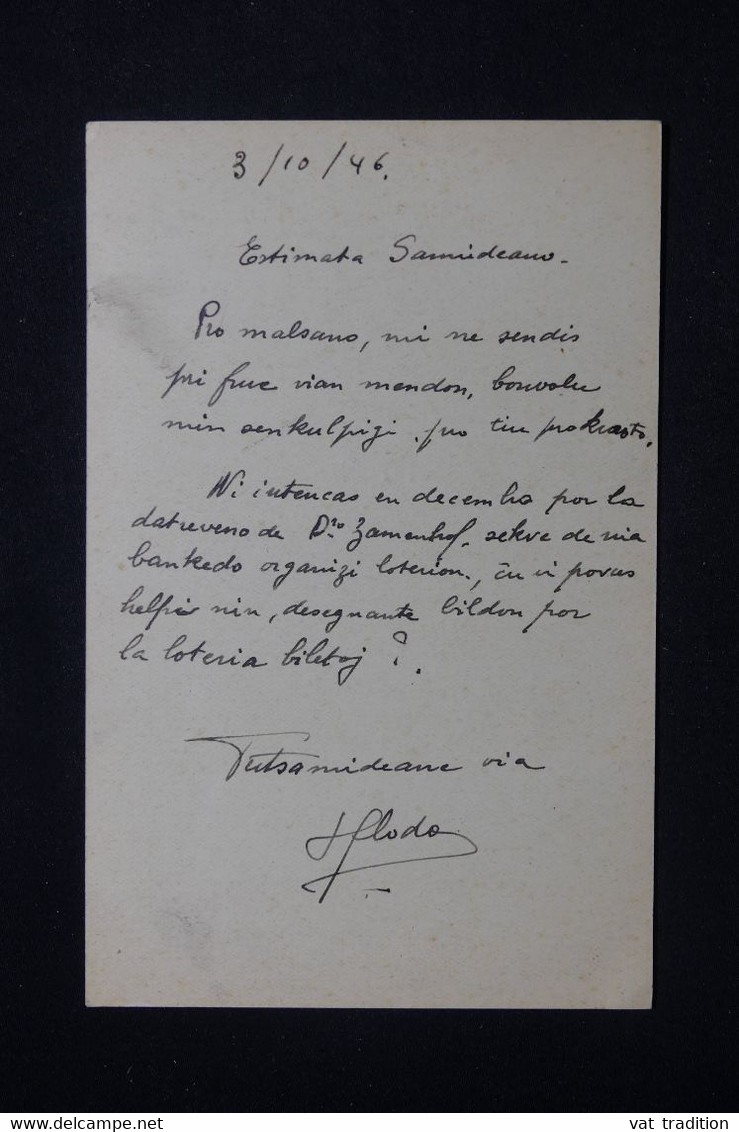 3/10/46.
Estimata Samideano.
Pro malsano, mi ne sendis
pri frue vian mendon, bonvolu
min senkulpigi pro tiu prokrasto.
Ni intencas en decembro por la
datreveno de D.ro Zamenhof. sekve de nia
bankedo organizi loterion., ĉu vi povas
helpi nin, desegnante bildon por
la loteria biletoj ?.
Tutsamideane via
delcampe.net
vat tradition